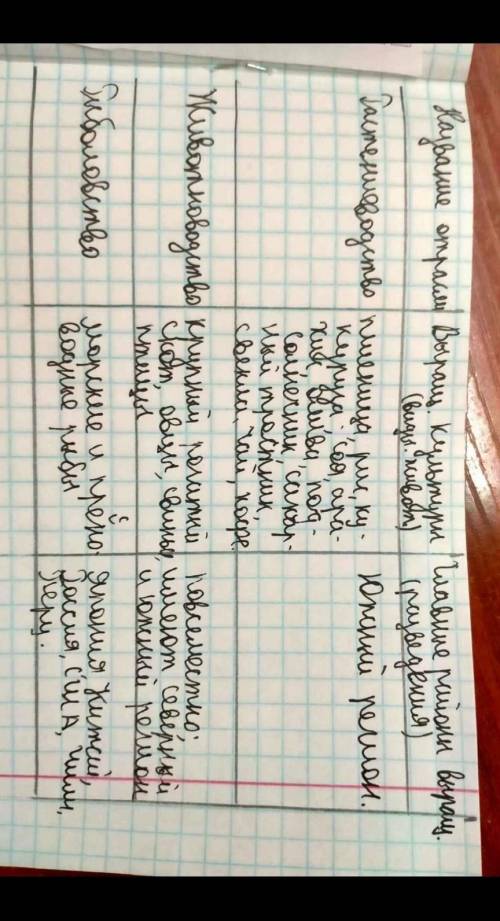 Название отрасли
Выращ. культуры
(виды живот)
Главные районы выращ.
(разведения)
Растениеводство
пшеница, рис, ку-
куруза, соя, ара-
хис, оливы, под-
солнечник, сахар-
ный тростник,
свекла, чай, кофе.
Южный регион.
Животноводство
крупный рогатый
скот, овцы, свиньи,
птицы
повсеместно:
имеют северный
и южный регион
Рыболовство
Морские и пресно-
водные рыбы
Япония, Китай,
Россия, США, Чили,
Перу.